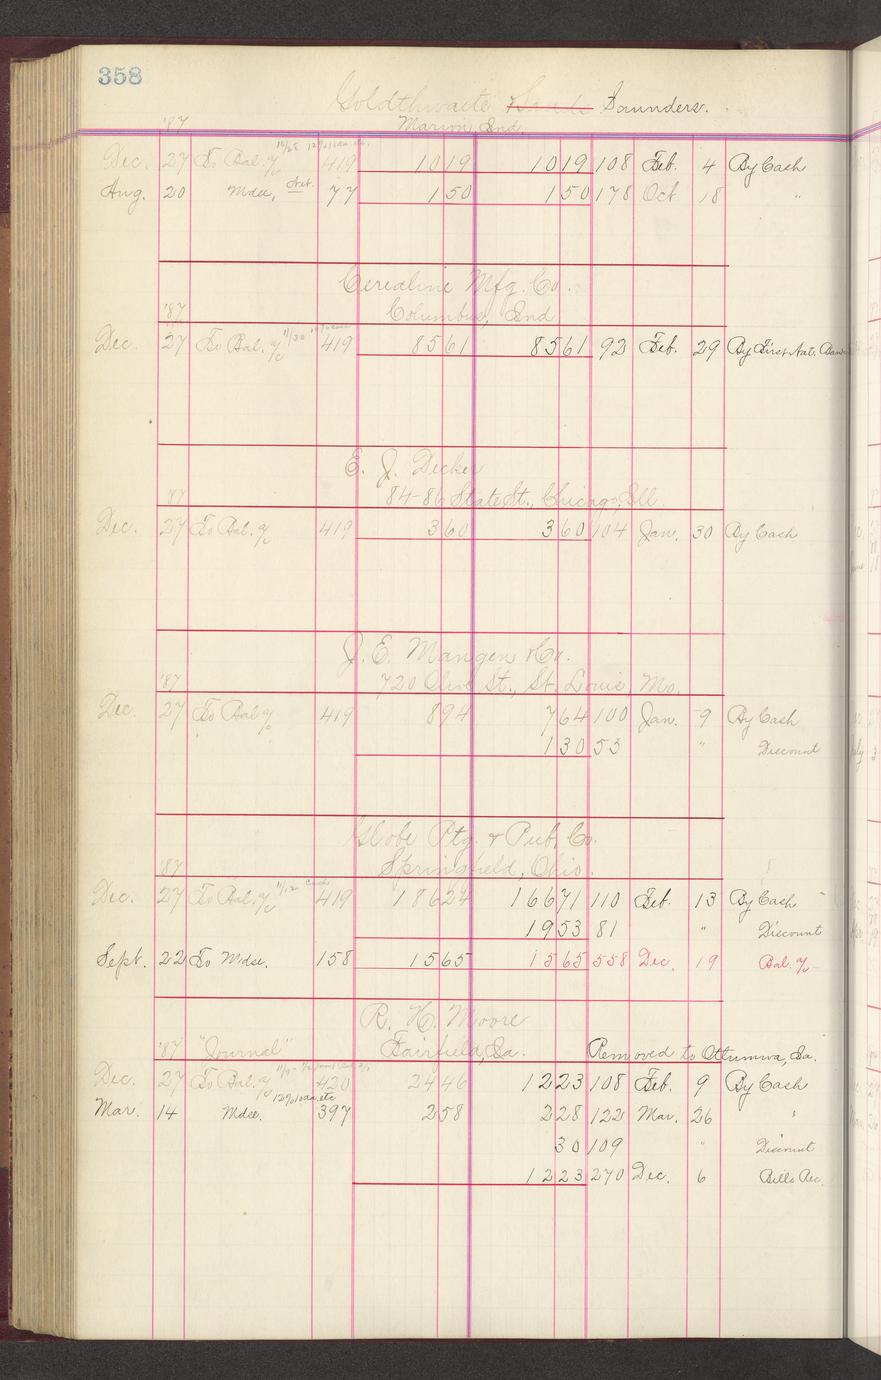 358
Goldthwaite & Saunders.
Marion, Ind.
'87
Dec. 27 To Bal. a/c 419 10 19 10 19 108 Feb. 4 By Cash
Aug. 20 Mdse, Net. 77 1 50 1 50 178 Oct 18 "
Cerealine Mfg. Co.
'87 Columbus, Ind
Dec. 27 To Bal. a/c 11/30 419 85 61 85 61 92 Feb. 29 By First Nat. Bank
E. J. Decker
'87 84-86 State St., Chicago, Ill.
Dec. 27 To Bal. a/c 419 3 60 3 60 104 Jan. 30 By Cash
J. E. Mangen & Co.
'87 720 Olive St., St. Louis, Mo.
Dec. 27 To Bal a/c 419 8 94 7 64 100 Jan. 9 By Cash
1 30 53 " Discount
Globe Ptg. & Pub. Co.
'87 Springfield, Ohio.
Dec. 27 To Bal. a/c 11/12 Cash 419 186 24 166 71 110 Feb. 13 By Cash
19 53 81 " Discount
Sept. 22 To Mdse. 158 15 65 15 65 558 Dec. 19 Bal. a/c
R. H. Moore
'87 "Journal" Fairfield, Ia. Removed to Ottumwa, Ia.
Dec. 27 To Bal. a/c 420 24 46 12 23 108 Feb. 9 By Cash
12%10aa.etc
Mar. 14 Mdse. 397 2 58 2 28 122 Mar. 26 "
30 109 " Discount
12 23 270 Dec. 6 Bills Rec.